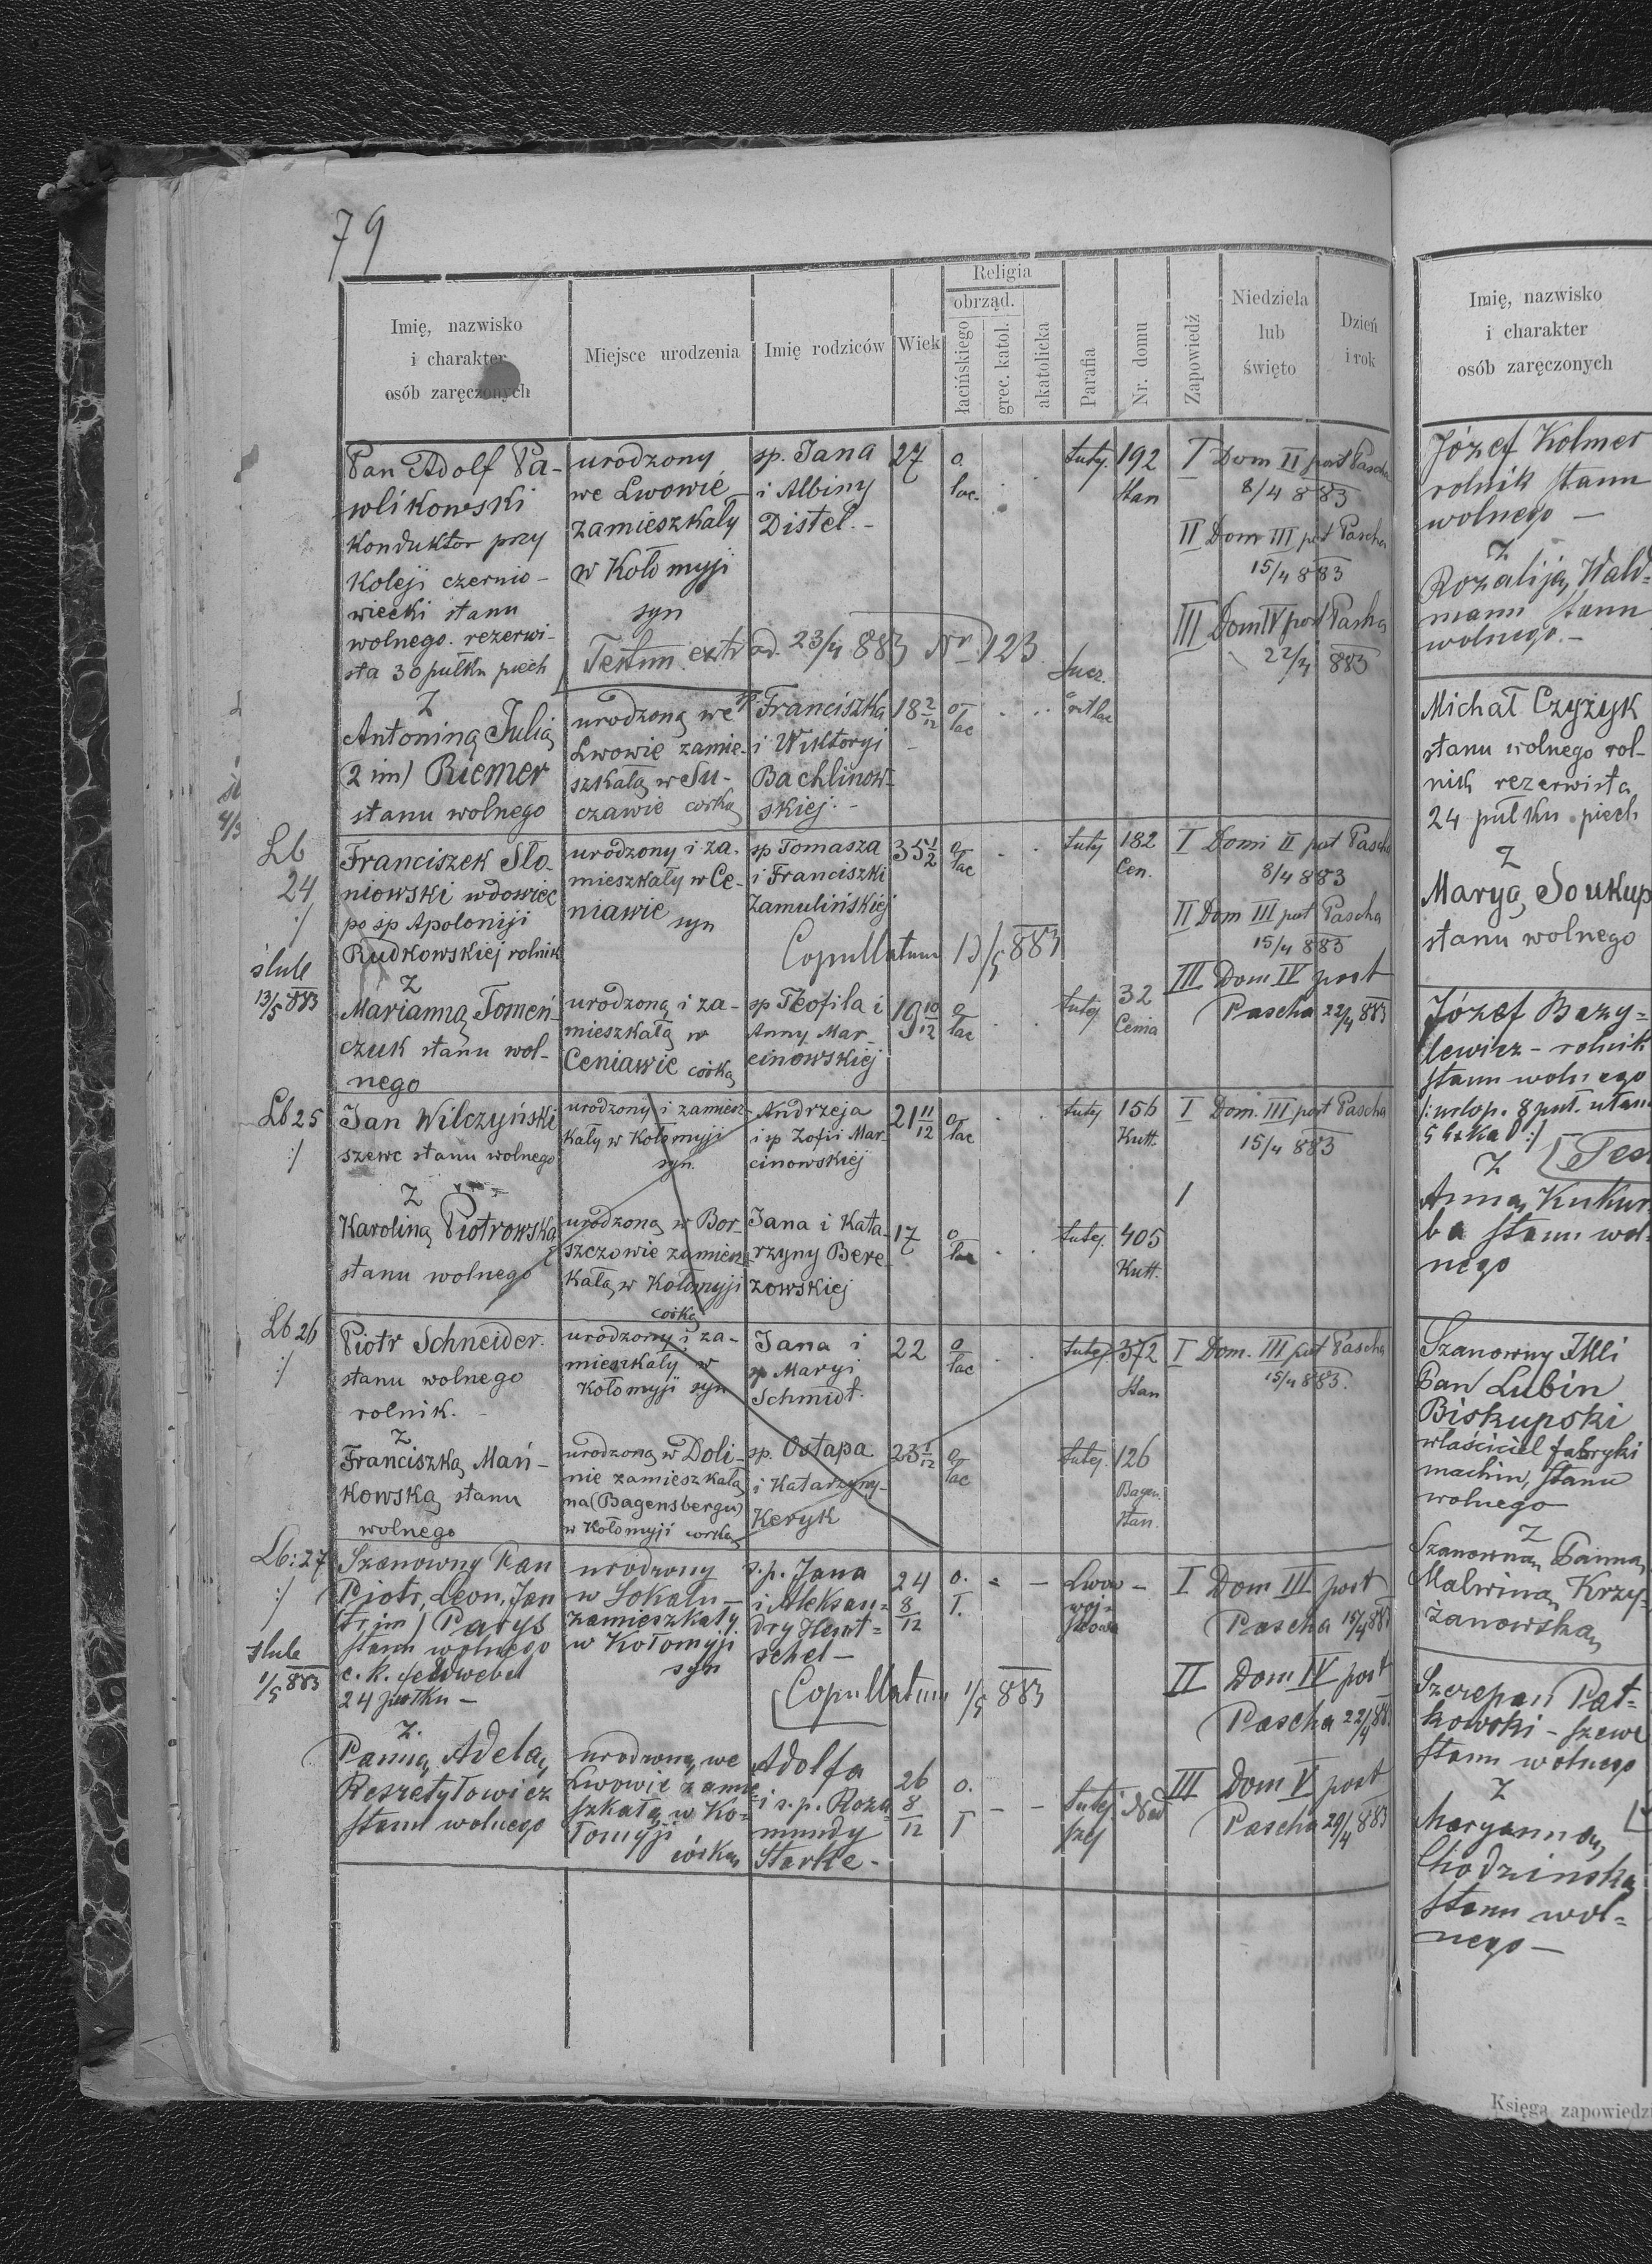 79
Imię, nazwisko
i charakter
osób zaręczonych
Miejsce urodzenia
Imię rodziców
Wiek
Religia
obrząd.
łacińskiego
grec. katol.
akatolicka
Parafia
Nr. domu
Zapowiedź
Niedziela
lub
święto
Dzień
i rok
Pan Adolf Pa-
wlikowski
Konduktor przy
Koleji czernio-
wiecki stanu
wolnego. rezerwi-
sta 30 pułku piech
urodzony
we Lwowie
zamieszkały
w Kołomyji
syn
sp. Jana
i Albiny
Distel.-
27
o.
łac.
tutej.
192
Stan
I Dom II post Pascha
8/4 883
II Dom III post Pascha
15/4 883
III Dom IV post Pascha
22/4 883
Testim. extrad. 23/4 883 Nr 123
Z
Antoniną Julią
(2 im) Riemer
stanu wolnego
urodzoną we
Lwowie zamie-
szkałą w Su-
czawie corką
sp. Franciszka
i Wiktoryi
Bachlinow-
skiej.-
18 2/12
o
łac
Sucz.
Lb
24
:/
ślub
13/5 883
Franciszek Sło-
niowski wdowiec
po sp Apoloniji
Rudkowskiej rolnik
urodzony i za-
mieszkały w Ce-
niawie syn
sp Tomasza
i Franciszki
Zamulińskiej
35 1/2
o
łac
tutej
182
Cen.
I Domi II post Pascha
8/4 883
II Dom III post Pascha
15/4 883
III Dom IV post
Pascha 22/4 883
Copullatum 13/5 883
Z
Marianną Tomeń-
czuk stanu wol-
nego
urodzoną i za-
mieszkałą w
Ceniawie corką
sp Teofila i
Anny Mar-
cinowskiej
19 10/12
o
łac
tutej
32
Cenia
Lb 25
:/
Jan Wilczyński
szewc stanu wolnego
urodzony i zamiesz-
kały w Kołomyji
syn.
Andrzeja
i sp Zofii Mar-
cinowskiej
21 11/12
o
łac
tutej
156
Kutt.
I Dom. III post Pascha
15/4 883
Z
Karoliną Piotrowską
stanu wolnego
urodzoną w Bor-
szczowie zamiesz-
kałą w Kołomyji
corką
Jana i Kata-
rzyny Bere-
zowskiej
17
o
łac
tutej.
405
Kutt.
Lb 26
:/
Piotr Schneider.
stanu wolnego
rolnik.
urodzony i za-
mieszkały w
Kołomyji syn
Jana i
sp Maryi
Schmidt.
22
o
łac
tutej
372
Stan
I Dom. III post Pascha
15/4 883.
Z
Franciszką Mań-
kowską stanu
wolnego
urodzoną w Doli-
nie zamieszkałą
na (Bagensbergu)
w Kołomyji corką
sp. Ostapa
i Katarzyny
Keryk
23 1/12
o
łac
tutej.
126
Bagen.
Stan.
Lb: 27
:/
slub
1/5 883
Szanowny Pan
Piotr, Leon, Jan
(tr. im) Parys
stanu wolnego
c. k. feldwebel
24 pułku -
urodzony
w Sokalu -
zamieszkały
w Kołomyji
syn
s.p. Jana
i Aleksan=
dry Hent=
schel -
24 8/12
o.
ł.
Lwow -
woj=
skowa
I Dom III post
Pascha 15/4 883
II Dom IV post
Pascha 22/4 88
III Dom V post
Pascha 29/4 883
Copullatum 1/5 883
z.
Panną Adelą
Reszetyłowicz
stanu wolnego
urodzoną we
Lwowie zamie-
szkałą w Ko=
łomyji
córką
Adolfa
i s.p. Roza=
mundy
Starke -
26 8/12
o.
ł
tutej
szej
Nad
Imię, nazwisko
i charakter
osób zaręczonych
Józef Kolmer
rolnik stanu
wolnego -
Z
Rozaliją Wald=
mann stanu
wolnego. -
Michał Czyżyk
stanu wolnego rol-
nik rezerwista
24 pułku piech
Z
Maryą Soukup
stanu wolnego
Józef Bazy=
lewicz - rolnik
stanu wolnego
/: urlop. 8 puł. ułan
:/
Z
Anną Kukur
ba stanu wol=
nego
Szanowny JMci
Pan Lubin
Biskupski
właściciel fabryki
machin, stanu
wolnego
Z
Szanowną Panną
Malwiną Krzy=
żanowską
Szczepan Pat=
kowski - szewc
stanu wolnego
Z
Maryanną
Chodzinską
stanu wol=
nego -
Księga zapowiedzi